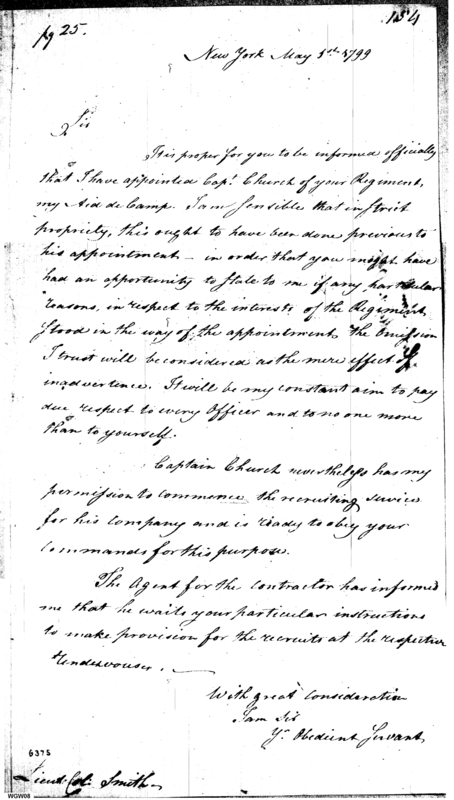 pg 25.
154
New York May 3rd 1799
Sir
It is proper for you to be informed officially
that I have appointed Capt. Church of your Regiment,
my Aid de Camp. I am sensible that in strict
propriety, this ought to have been done previous to
his appointment – in order that you might have
had an opportunity to state to me if any particular
reasons, in respect to the interests of the Regiment,
stood in the way of the appointment, the Omission
I trust will be considered as the mere effect of
inadvertence. It will be my constant aim to pay
due respect to every Officer and to no one more
than to yourself.
Captain Church nevertheless has my
permission to commence the recruiting service
for his company and is ready to obey your
commands for this purpose.
The Agent for the contractor has informed
me that he waits your particular instructions
to make provision for the recruits at the respective
rendezvouses. —
With great Consideration
I am Sir
Yr. Obedient Servant
6375
Lieut. Col. Smith
WGW08